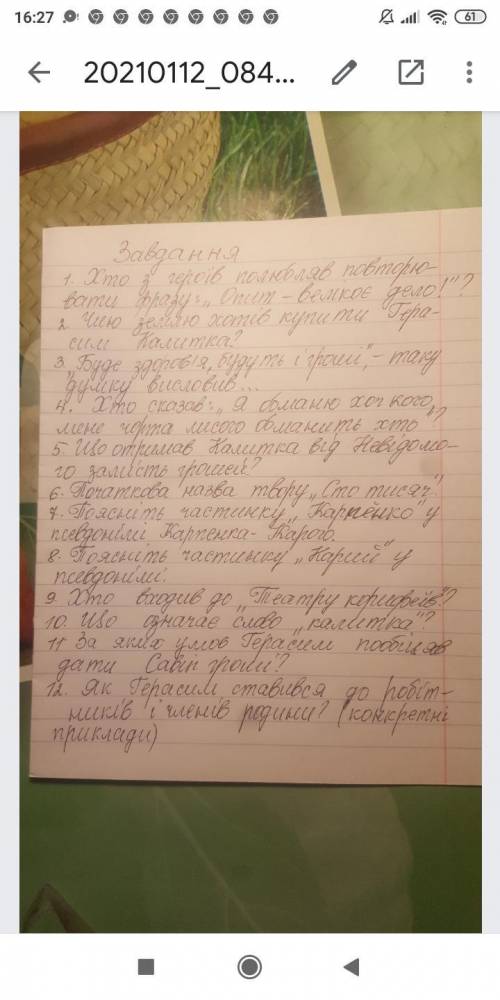 16:27
61
20210112_084...
Завдання
1. Хто з героїв полюбляв повторю-
вати фразу: „Опит – велікоє дело!"?
2. Чию землю хотів купити Гера-
сим Калитка?
3. „Буде здоров'я, будуть і гроші", – таку
думку висловив...
4. Хто сказав: „Я обманю хоч кого,
мене чорта лисого обманить хто"?
5. Що отримав Калитка від Невідомо-
го замість грошей?
6. Початкова назва твору „Сто тисяч"
7. Поясніть частинку „Карпенко" у
псевдонімі Карпенка-Карого.
8. Поясніть частинку „Карий" у
псевдонімі.
9. Хто входив до „Театру корифеїв"?
10. Що означає слово „калитка"?
11 За яких умов Герасим пообіцяв
дати Савці гроші?
12. Як Герасим ставився до робіт-
ників і членів родини? (конкретні
приклади)